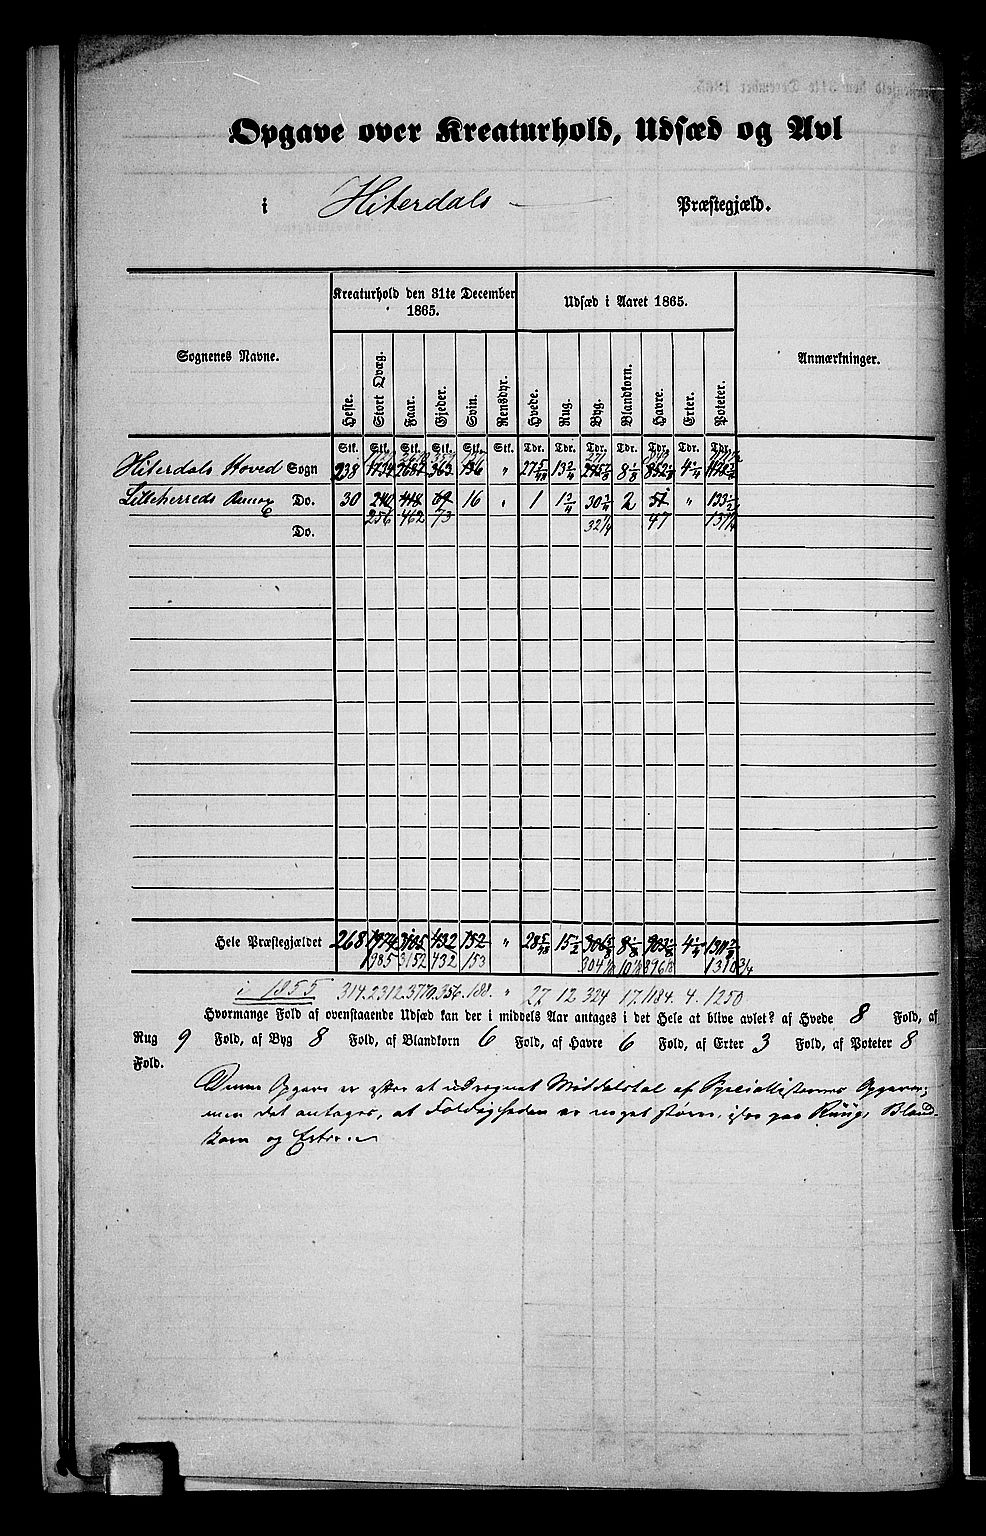 Opgave over Kreaturhold, Udsæd og Avl
i Hiterdals Præstegjæld.
Sognenes Navne. Kreaturhold den 31te December 1865. Udsæd i Aaret 1865. Anmærkninger.
Heste. Stort Qvæg. Faar. Gjeder. Sviin. Rensdyr. Hvede. Rug. Byg. Blandkorn. Havre. Erter. Poteter.
Stk. Stk. Stk. Stk. Stk. Stk. Tdr. Tdr. Tdr. Tdr. Tdr. Tdr. Tdr.
Hiterdals Hoved Sogn 238 1734 2687 363 136 "
Lilleherreds Do. 30 240 418 69 16 " 1 1 3/4 30 3/4 2 51 " 133 1/2
256 462 73 32 1/4 47 137 1/4
Do.
Hele Præstegjældet 268 1974 3105 432 152 " 28 5/48 15 1/2
1985 3152 432 153 1310 3/4
i 1855 314. 2312. 3770. 356. 188. " 27 12 324 17. 1184. 4. 1250
Hvormange Fold af ovenstaaende Udsæd kan der i middels Aar antages i det Hele at blive avlet? af Hvede 8 Fold, af
Rug 9 Fold, af Byg 8 Fold, af Blandkorn 6 Fold, af Havre 6 Fold, af Erter 3 Fold, af Poteter 8
Fold.
Denne Opgave er efter et udregnet Middeltal af Speciallisternes Opgaver;
men det antages, at Foldigheden er noget større, især paa Ruug, Bland-
korn og Erter.